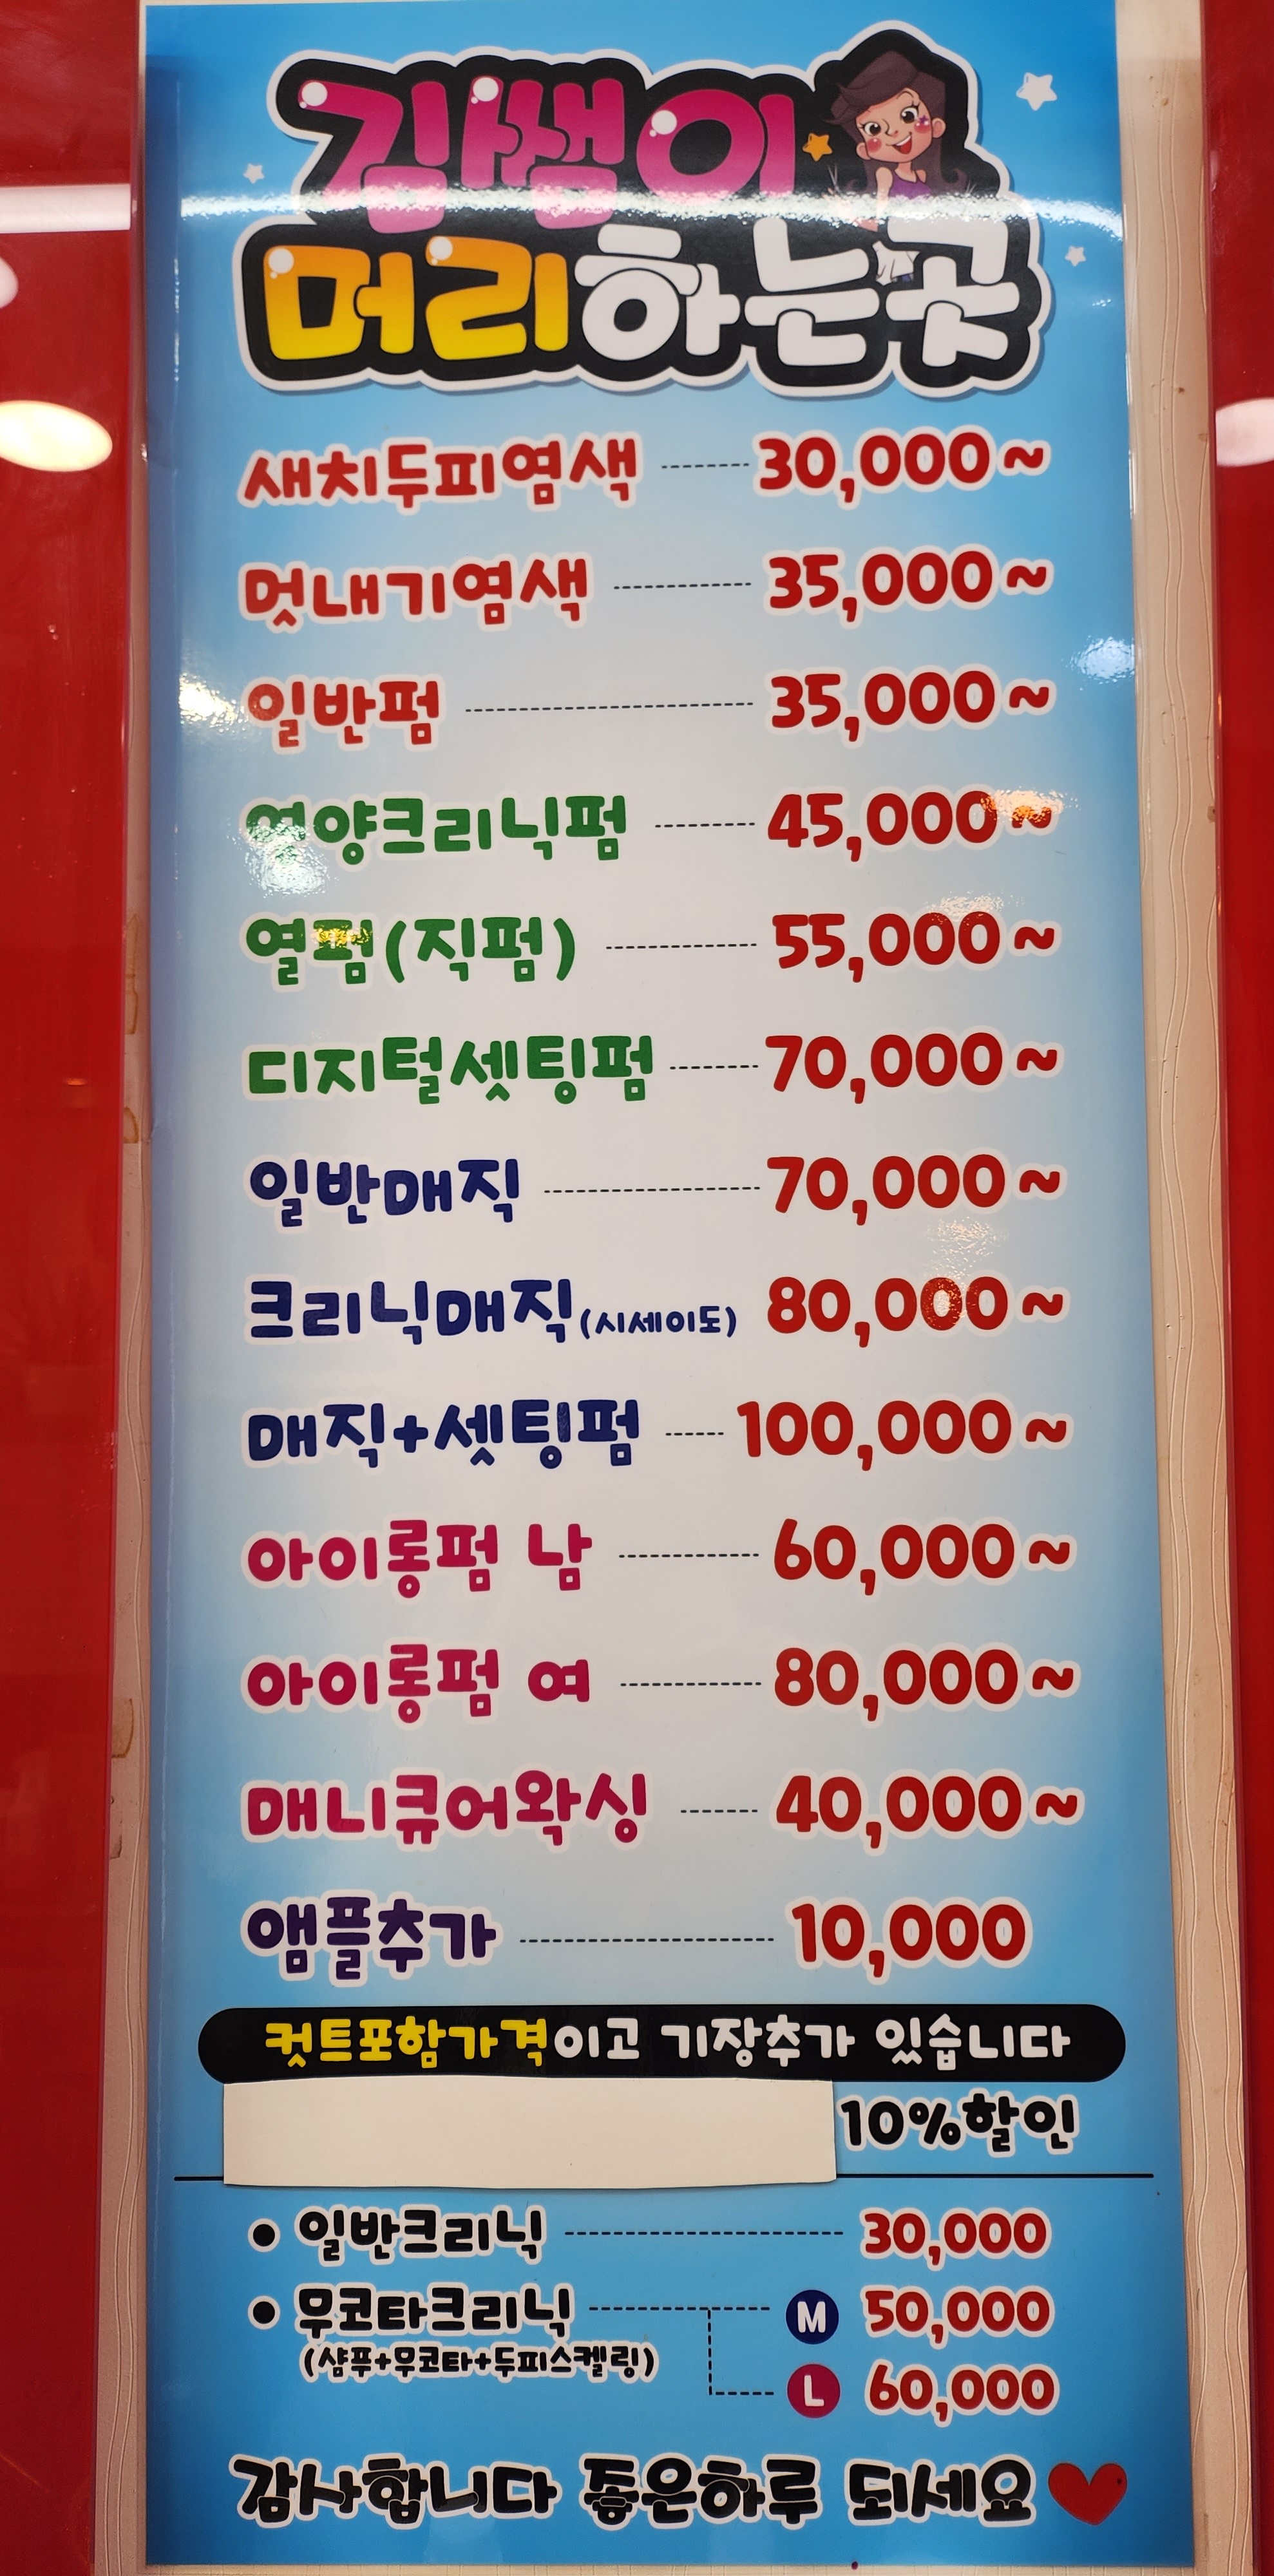 김쌤이
머리하는곳
새치두피염색 30,000~
멋내기염색 35,000~
일반펌 35,000~
영양크리닉펌 45,000~
열펌(직펌) 55,000~
디지털셋팅펌 70,000~
일반매직 70,000~
크리닉매직(시세이도) 80,000~
매직+셋팅펌 100,000~
아이롱펌 남 60,000~
아이롱펌 여 80,000~
매니큐어왁싱 40,000~
앰플추가 10,000
컷트포함가격이고 기장추가 있습니다
10%할인
• 일반크리닉 30,000
• 무코타크리닉 M 50,000
(샴푸+무코타+두피스켈링)
L 60,000
감사합니다 좋은하루 되세요